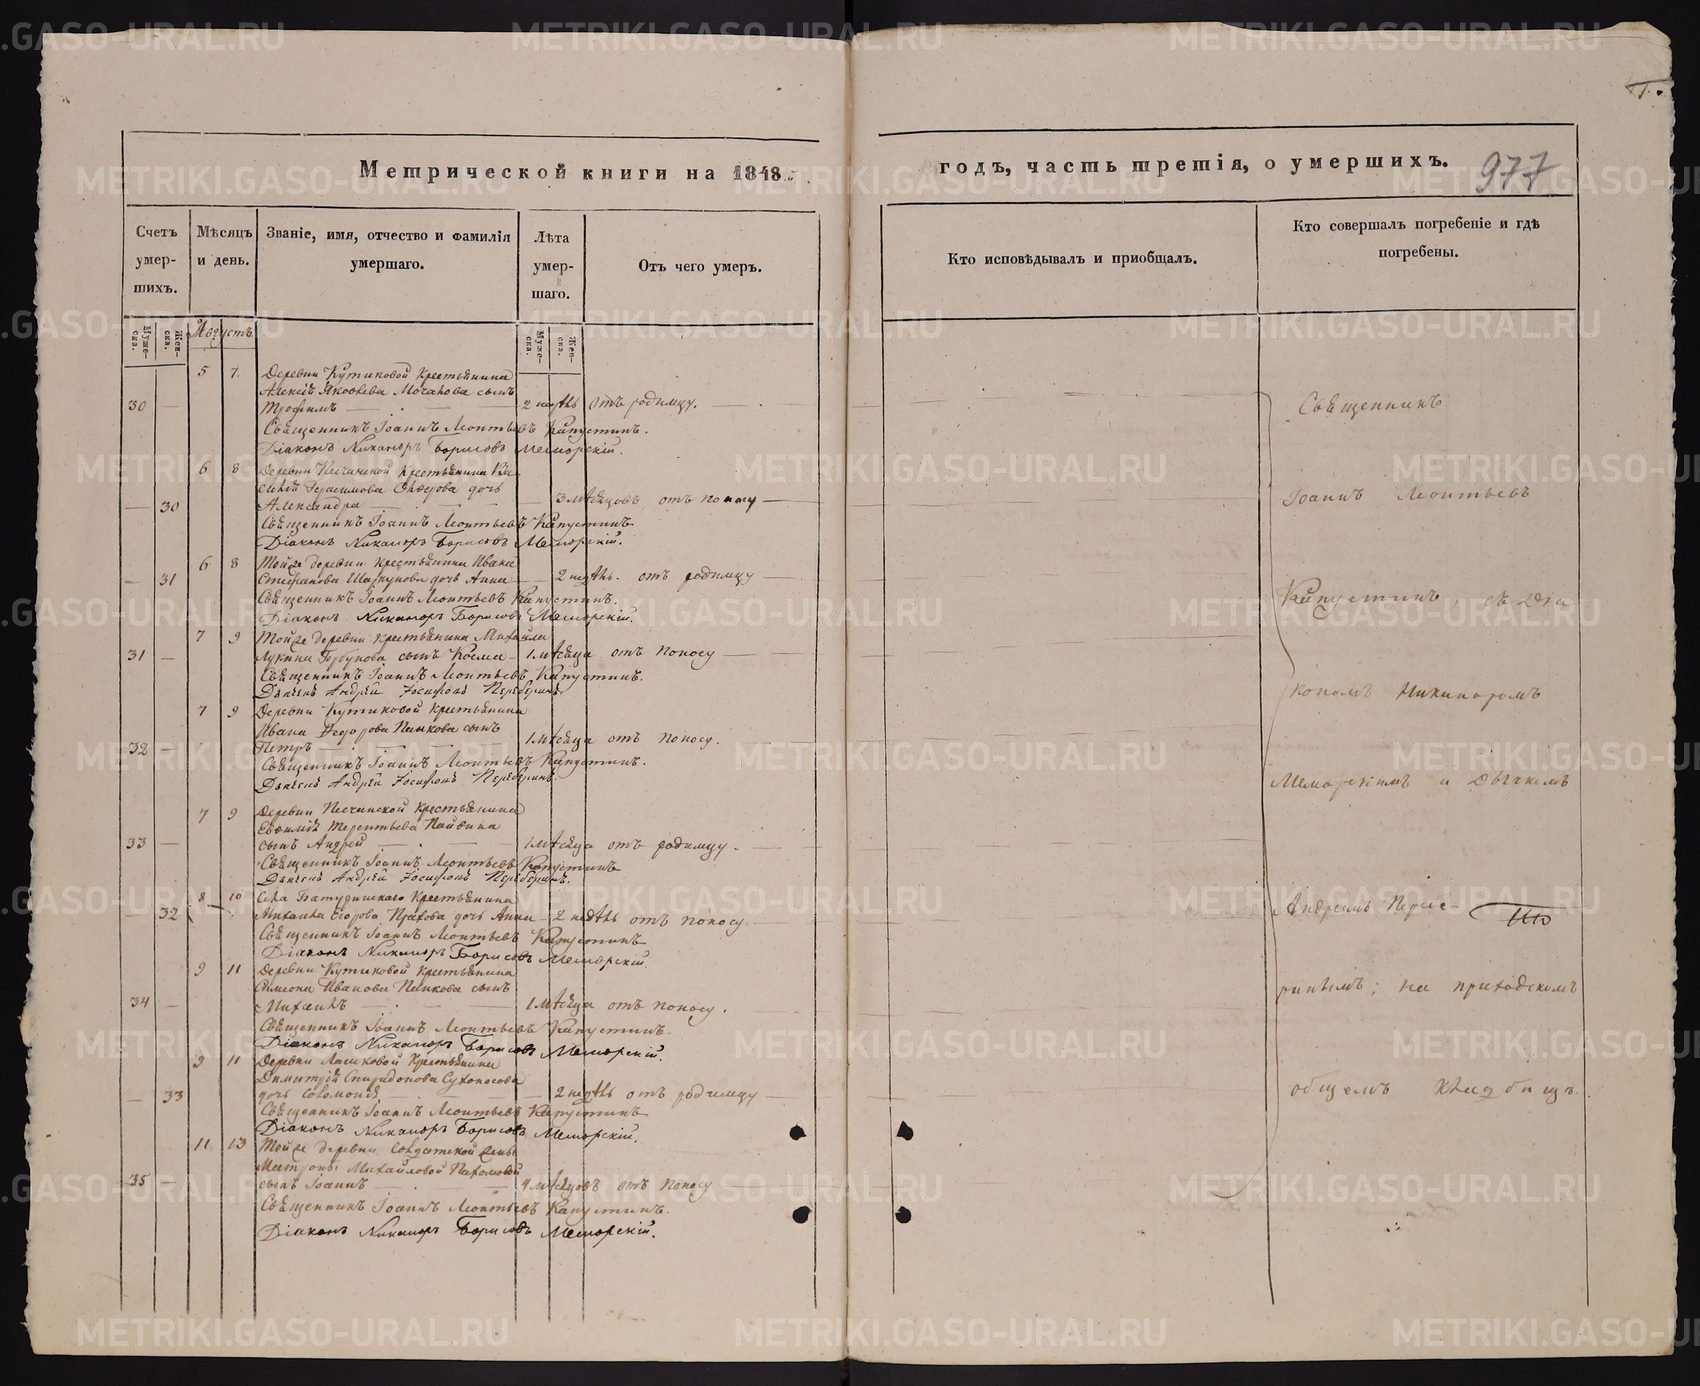 Метрической книги на 1848
годъ, часть третія, о умершихъ.
977
Счетъ умер-шихъ.
Мѣсяцъ и день.
Званіе, имя, отчество и фамилія умершаго.
Лѣта умер-шаго.
Отъ чего умеръ.
Кто исповѣдывалъ и пріобщалъ.
Кто совершалъ погребеніе и гдѣ погребены.
Муже-ска.
Жен-ска.
Августъ
Муже-ска.
Жен-ска.
5 7. Деревни Кутиковой Крестьянина
Алексѣя Яковлева Мочалова сынъ
30 — Трофимъ — 2 недѣль отъ родимцу.
Священникъ Іоаннъ Леонтьевъ Капустинъ.
Діаконъ Никаноръ Борисовъ Меморскій.
6 8 Деревни Песчанской Крестьянина Ва-
силія Герасимова дочь
— 30 Александра — 3 мѣсяцовъ отъ поносу
Священникъ Іоаннъ Леонтьевъ Капустинъ
Діаконъ Никаноръ Борисовъ Меморскій.
6 8 Той же деревни крестьянина Ивана
— 31 Стефанова дочь Анна — 2 недѣль. отъ родимцу
Священникъ Іоаннъ Леонтьевъ Капустинъ.
Діаконъ Никаноръ Борисовъ Меморскій.
7 9 Той же деревни крестьянина Михаила
31 — Лукина сынъ Козма — 1 мѣсяца отъ поносу
Священникъ Іоаннъ Леонтьевъ Капустинъ.
Дьячекъ Андрей Іосифовъ
7 9 Деревни Кутиковой Крестьянина
Ивана Федорова Пенкова сынъ
32 — Петръ — 1 мѣсяца отъ поносу.
Священникъ Іоаннъ Леонтьевъ Капустинъ.
Дьячекъ Андрей Іосифовъ
7 9 Деревни Песчанской Крестьянина
Евфимія Терентьева
33 — сынъ Андрей — 1 мѣсяца отъ родимцу.
Священникъ Іоаннъ Леонтьевъ Капустинъ
Дьячекъ Андрей Іосифовъ
8 10 Села Батуринскаго Крестьянина
— 32 Михаила Егорова дочь Анна — 2 недѣль отъ поносу.
Священникъ Іоаннъ Леонтьевъ Капустинъ
Діаконъ Никаноръ Борисовъ Меморскій.
9 11 Деревни Кутиковой Крестьянина
Симеона Иванова Пенкова сынъ
34 — Михаилъ — 1 мѣсяца отъ поносу.
Священникъ Іоаннъ Леонтьевъ Капустинъ
Діаконъ Никаноръ Борисовъ Меморскій.
9 11 Деревни Крестьянина
Димитрія Спиридонова Сухоносова
— 33 дочь Соломонія — 2 недѣль отъ родимцу
Священникъ Іоаннъ Леонтьевъ Капустинъ
Діаконъ Никаноръ Борисовъ Меморскій.
11. 13 Той же деревни Солдатской жены
Матроны Михайловой Пахомовой
35 — сынъ Іоаннъ — 4 мѣсяцовъ отъ поносу
Священникъ Іоаннъ Леонтьевъ Капустинъ.
Діаконъ Никаноръ Борисовъ Меморскій.
Священникъ
Іоаннъ Леонтьевъ
Капустинъ, съ Діа
кономъ Никаноромъ
Меморскимъ и Дьячкомъ
Андреемъ Пере-
; на приходскомъ
общемъ кладбищѣ.
METRIKI.GASO-URAL.RU